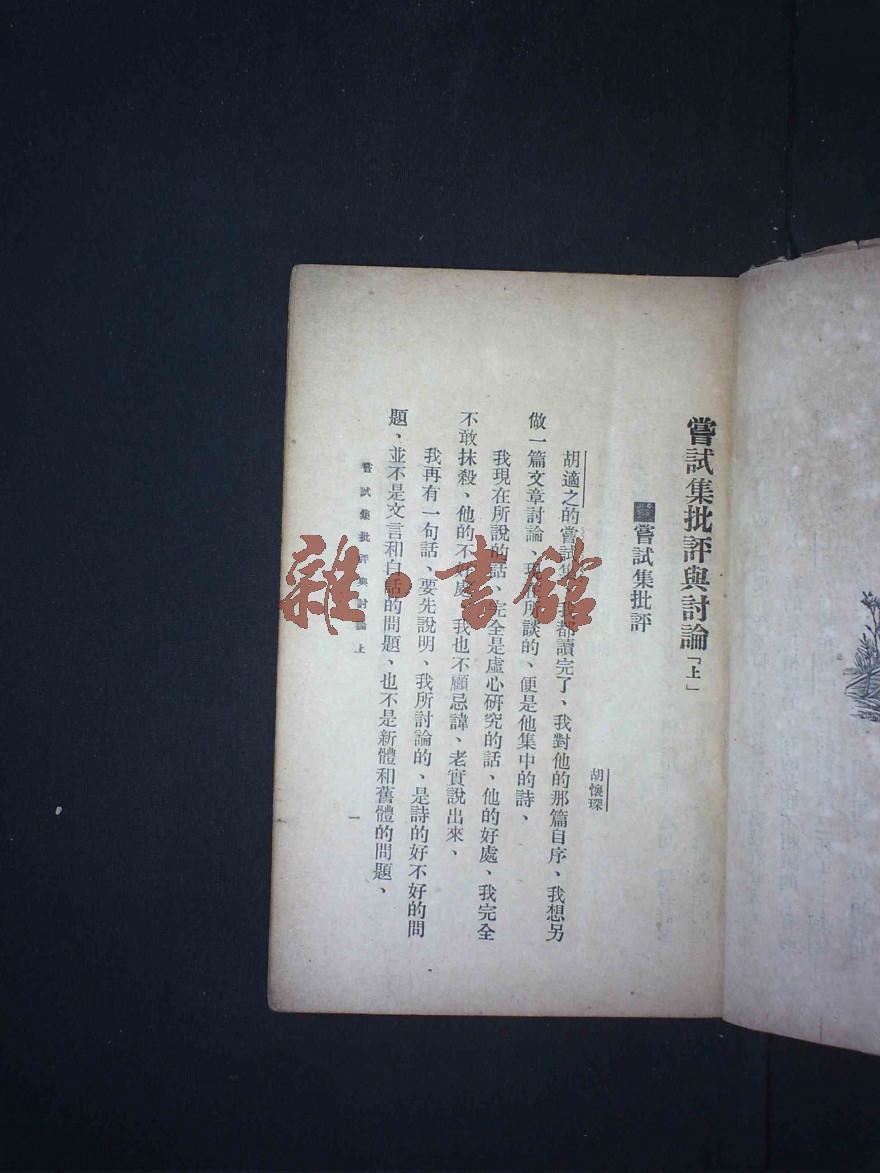 嘗試集批評與討論「上」
嘗試集批評
胡懷琛
胡適之的嘗試集、我都讀完了、我對他的那篇自序、我想另
做一篇文章討論、我所談的、便是他集中的詩、
我現在所說的話、完全是虛心硏究的話、他的好處、我完全
不敢抹殺、他的不好處、我也不顧忌諱、老實說出來、
我再有一句話、要先說明、我所討論的、是詩的好不好的問
題、並不是文言和白話的問題、也不是新體和舊體的問題、
嘗試集批評與討論 上
一
雜·書館